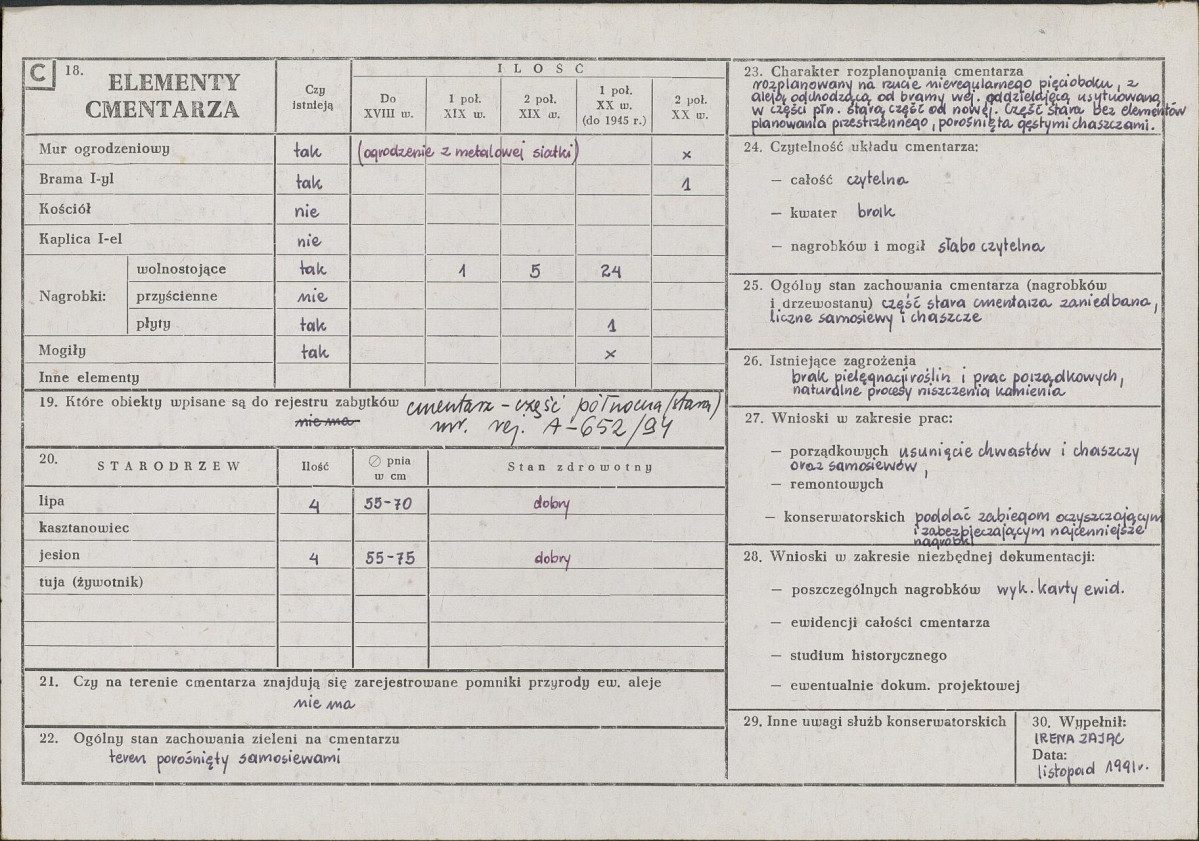 C 18. ELEMENTY CMENTARZA
Czy istnieją
ILOŚĆ
Do XVIII w.
1 poł. XIX w.
2 poł. XIX w.
1 poł. XX w. (do 1945 r.)
2 poł. XX w.
Mur ogrodzeniowy tak (ogrodzenie z metalowej siatki) x
Brama I-yl tak 1
Kościół nie
Kaplica I-el nie
Nagrobki:
wolnostojące tak 1 5 24
przyścienne nie
płyty tak 1
Mogiły tak x
Inne elementy
19. Które obiekty wpisane są do rejestru zabytków cmentarz - część północna (stara)
nie ma nr. rej. A-652/94
20. STARODRZEW Ilość ∅ pnia w cm Stan zdrowotny
lipa 4 55-70 dobry
kasztanowiec
jesion 4 55-75 dobry
tuja (żywotnik)
21. Czy na terenie cmentarza znajdują się zarejestrowane pomniki przyrody ew. aleje
nie ma
22. Ogólny stan zachowania zieleni na cmentarzu
teren porośnięty samosiewami
23. Charakter rozplanowania cmentarza
rozplanowany na rzucie nieregularnego pięcioboku, z
aleją odchodzącą od bramy wej. oddzielającą usytuowaną
w części płn. starą część od nowej. Część stara bez elementów
planowania przestrzennego, porośnięta gęstymi chaszczami.
24. Czytelność układu cmentarza:
— całość czytelna
— kwater brak
— nagrobków i mogił słabo czytelna
25. Ogólny stan zachowania cmentarza (nagrobków
i drzewostanu) część stara cmentarza zaniedbana,
liczne samosiewy i chaszcze
26. Istniejące zagrożenia
brak pielęgnacji roślin i prac porządkowych,
naturalne procesy niszczenia kamienia
27. Wnioski w zakresie prac:
— porządkowych usunięcie chwastów i chaszczy
oraz samosiewów,
— remontowych
— konserwatorskich poddać zabiegom oczyszczającym
i zabezpieczającym najcenniejsze
nagrobki
28. Wnioski w zakresie niezbędnej dokumentacji:
— poszczególnych nagrobków wyk. karty ewid.
— ewidencji całości cmentarza
— studium historycznego
— ewentualnie dokum. projektowej
29. Inne uwagi służb konserwatorskich
30. Wypełnił:
IRENA ZAJĄC
Data:
listopad 1991r.